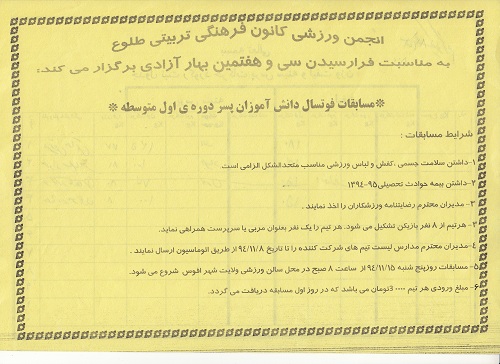 انجمن ورزشی کانون فرهنگی تربیتی طلوع
به مناسبت فرارسیدن سی و هفتمین بهار آزادی برگزار می کند:
* مسابقات فوتسال دانش آموزان پسر دوره ی اول متوسطه *
شرایط مسابقات :
۱-داشتن سلامت جسمی ،کفش و لباس ورزشی مناسب متحدالشکل الزامی است
۲-داشتن بیمه حوادث تحصیلی۹۵-۱۳۹۴
۳-مدیران محترم رضایتنامه ورزشکاران را اخذ نمایند .
۳-هرتیم از ۸ نفر بازیکن تشکیل می شود. هر تیم را یک نفر بعنوان مربی یا سرپرست همراهی نماید.
۴-مدیران محترم مدارس لیست تیم های شرکت کننده را تا تاریخ ۹۴/۱۱/۸ از طریق اتوماسیون ارسال نمایند .
۵-مسابقات روزپنج شنبه ۹۴/۱۱/۱۵ از ساعت ۸ صبح در محل سالن ورزشی ولایت شهر افوس شروع می شود.
۶-مبلغ ورودی هر تیم ۳۰۰۰۰تومان می باشد که در روز اول مسابقه دریافت می گردد.